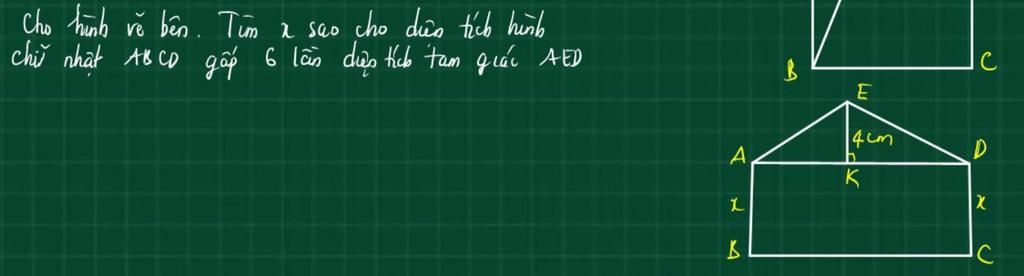 Cho hình vẽ bên. Tìm x sao cho diện tích hình
chữ nhật ABCD gấp 6 lần diện tích tam giác AED
B
C
E
4cm
A
D
K
x
x
B
C